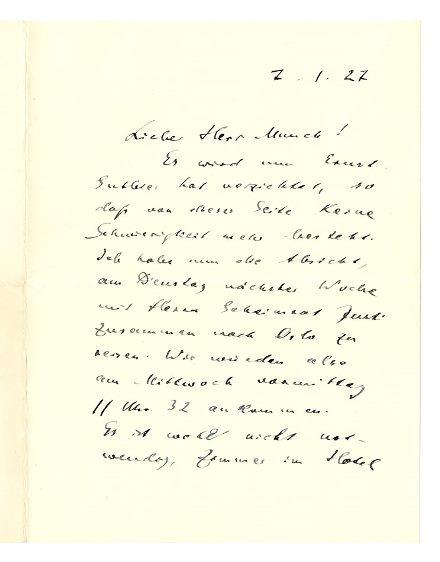 7. 1. 27
Lieber Herr Munch!
Es wird nun Ernst.
hat verzichtet, so
daß von dieser Seite keine
Schwierigkeit mehr besteht.
Ich habe nun die Absicht,
am Dienstag nächster Woche
mit Herrn Geheimrat Justi
zusammen nach Oslo zu
reisen. Wir würden also
am Mittwoch vormittag
11 Uhr 32 ankommen.
Es ist wohl nicht not-
wendig, Zimmer im Hotel